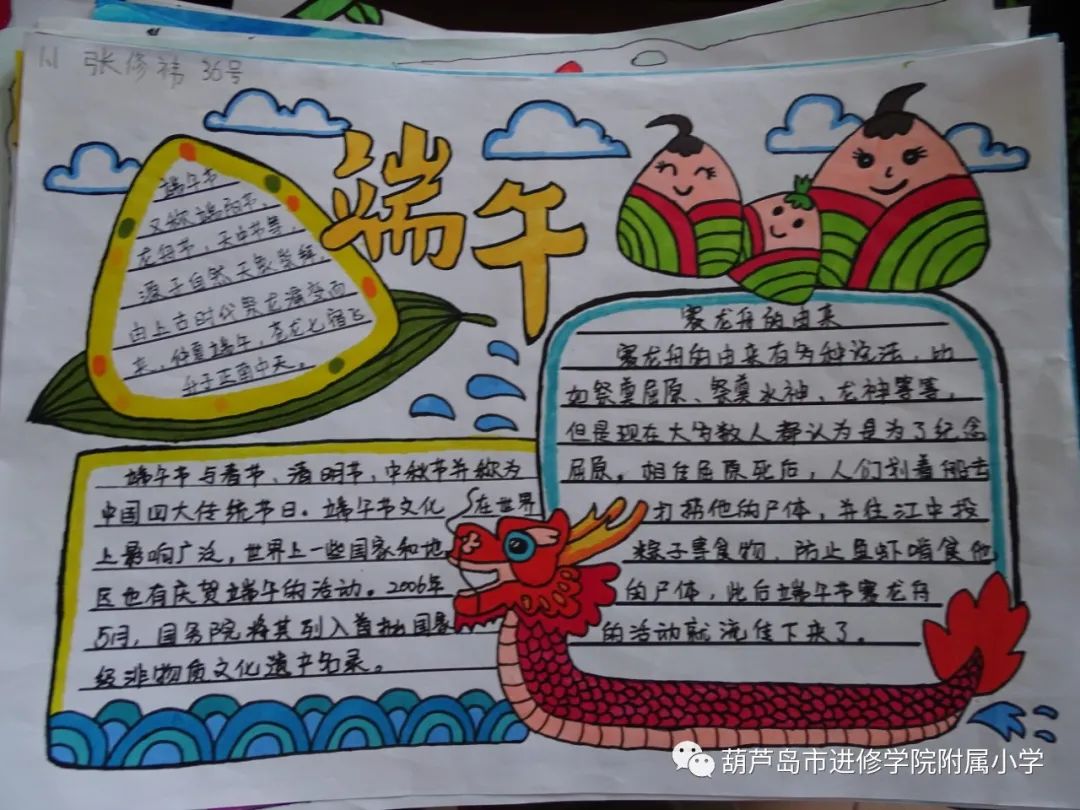 1.1 张修祎 36号
端午
端午节
又称端阳节、
龙舟节、天中节等，
源于自然天象崇拜，
由上古时代祭龙演变而
来，仲夏端午，苍龙七宿飞
升于正南中天。
赛龙舟的由来
赛龙舟的由来有多种说法，比
如祭奠屈原、祭奠水神、龙神等等，
但是现在大多数人都认为是为了纪念
屈原。相传屈原死后，人们划着船去
打捞他的尸体，并往江中投
粽子等食物，防止鱼虾啃食他
的尸体，此后端午节赛龙舟
的活动就流传下来了。
端午节与春节、清明节、中秋节并称为
中国四大传统节日。端午节文化在世界
上影响广泛，世界上一些国家和地
区也有庆贺端午的活动。2006年
5月，国务院将其列入首批国家
级非物质文化遗产名录。
葫芦岛市进修学院附属小学